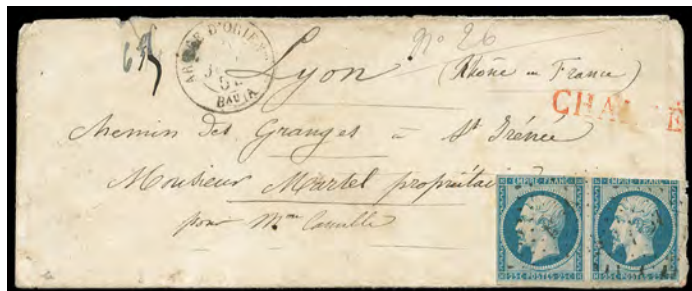 ARMÉE D'ORIENT
54
BAU (A)
N° 26
Lyon (Rhône en France)
CHARGÉ
Chemin des Granges à St Irénée
Monsieur Martel propriétaire
pour Mme Camille
EMPIRE FRANC EMPIRE FRANC
25 C POSTES 25 C 25 C POSTES 25 C